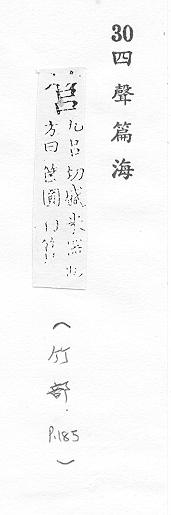 30四聲篇海
筥
九呂切盛米器也
方曰筐圓曰筥
(竹部.P.185)